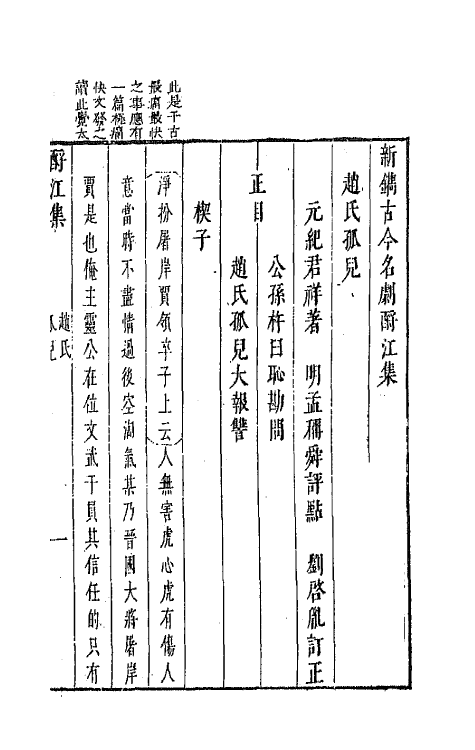 新鐫古今名劇酹江集
趙氏孤兒
元紀君祥著　明孟稱舜評點　劉啓胤訂正
公孫杵臼恥勘問
正目
趙氏孤兒大報讐
楔子
淨扮屠岸賈領卒子上云人無害虎心虎有傷人
意當時不盡情過後空淘氣某乃晉國大將屠岸
賈是也俺主靈公在位文武千員其信任的只有
酹江集　趙氏孤兒　一
此是千古
最痛最快
之事應有
一篇極痛
快文發之
讀此覺太